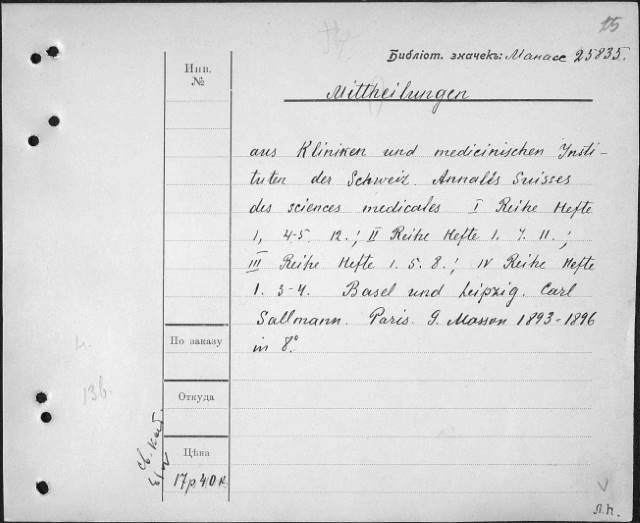 15
Библіот. значекъ: Манасе 25835.
Инв.
№
Mittheilungen
aus Kliniken und medicinischen Insti-
tuten der Schweiz. Annales Suisses
des sciences medicales I Reihe Hefte
1, 4-5. 12.; II Reihe Hefte 1. 7. 11.;
III Reihe Hefte 1. 5. 8.; IV Reihe Hefte
1. 3-4. Basel und Leipzig. Carl
Sallmann. Paris. G. Masson 1893-1896
in 8°.
По заказу
Откуда
Цѣна
17 р 40 к
13b.
Л.п.